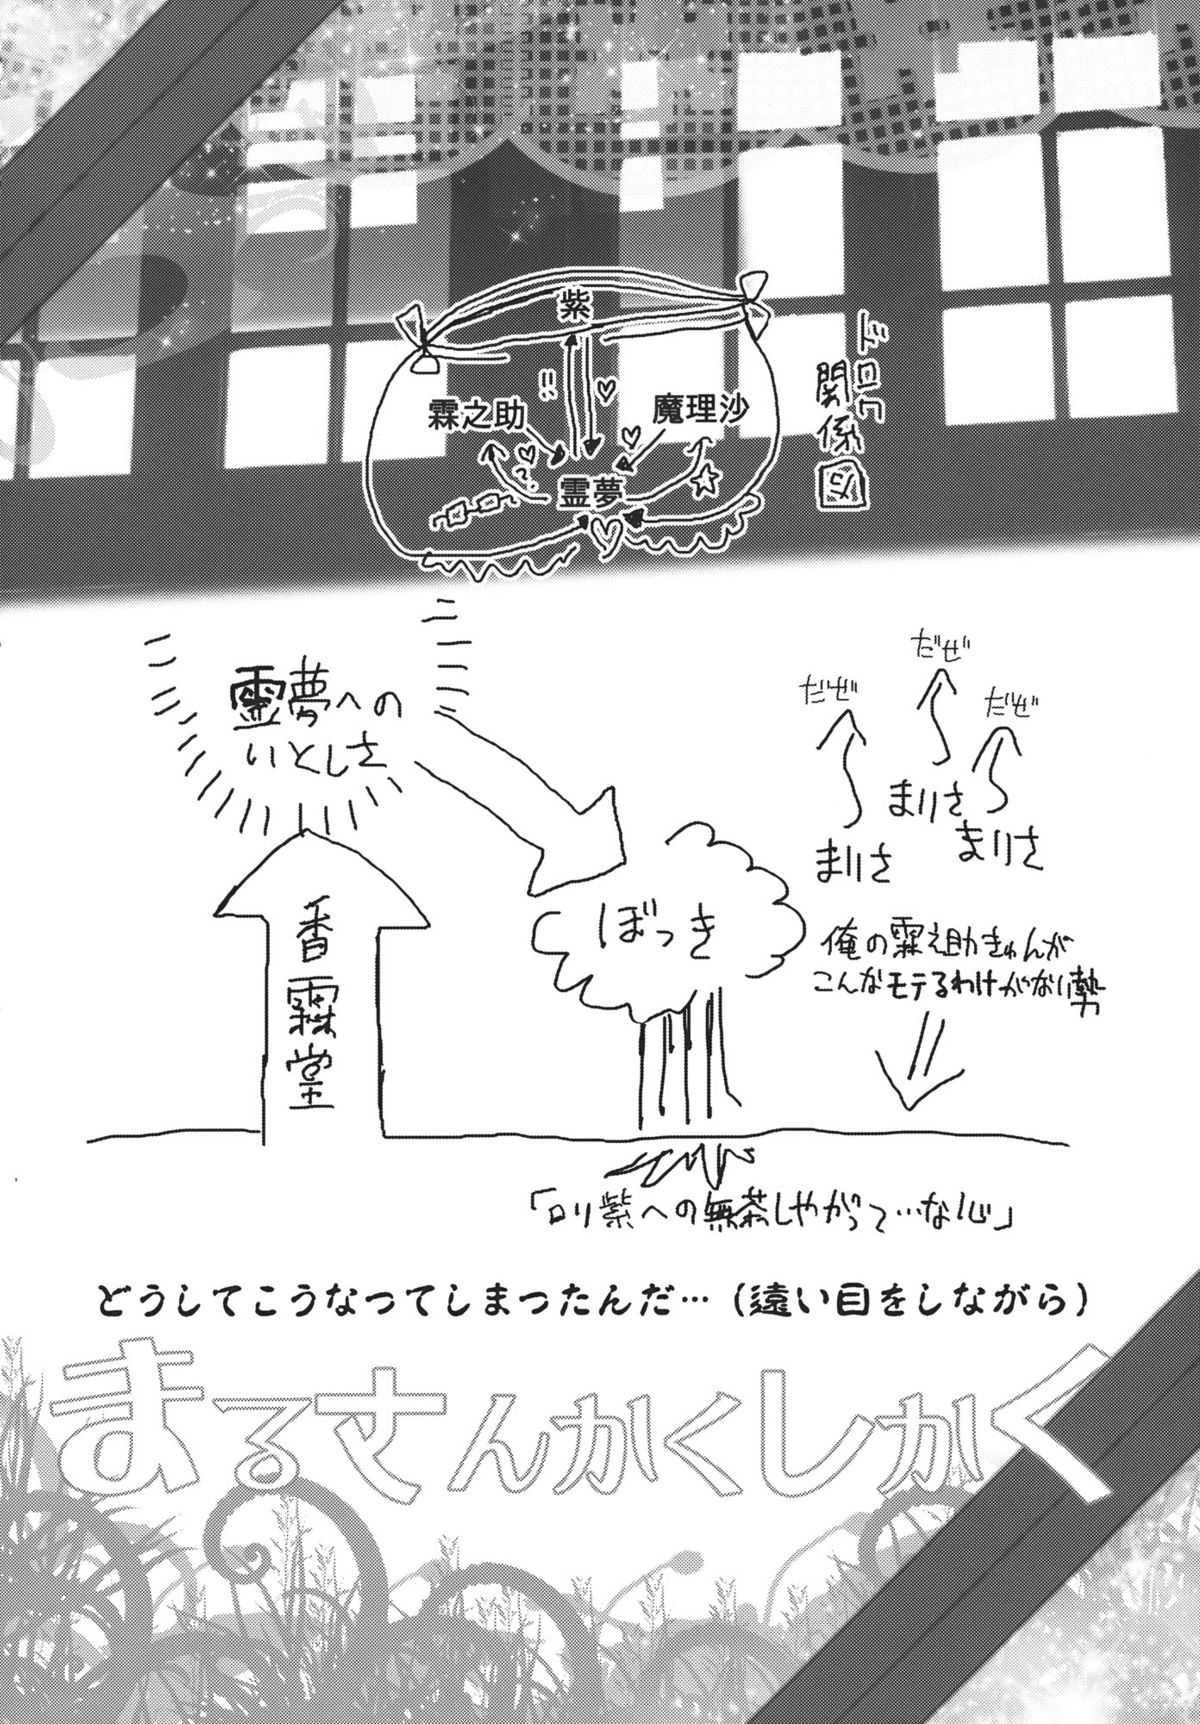 ドロワ
関係図
紫
霖之助
魔理沙
!!
♡
♡
♡?
霊夢
☆
♡
霊夢への
いとしさ
香霖堂
ぼっき
だぜ
だぜ
だぜ
まりさ
まりさ
まりさ
俺の霖之助きゅんが
こんなモテるわけがない勢
「ロリ紫への無茶しやがって…な心」
どうしてこうなってしまったんだ…(遠い目をしながら)
まるさんかくしかく